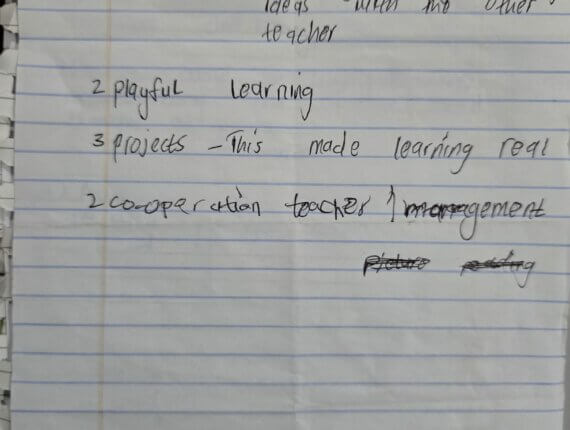 ideas with the other
teacher
2 playful learning
3 projects - This made learning real
2 co-operation teacher / management
picture reading